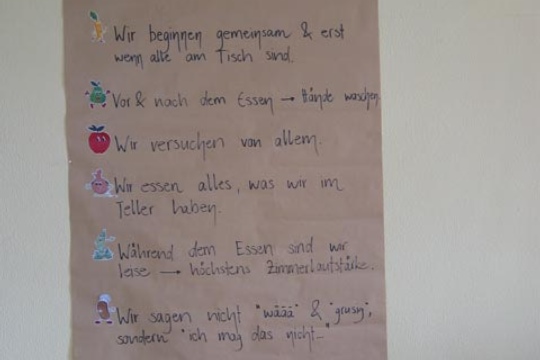 Wir beginnen gemeinsam & erst
wenn alle am Tisch sind.
Vor & nach dem Essen → Hände waschen.
Wir versuchen von allem.
Wir essen alles, was wir im
Teller haben.
Während dem Essen sind wir
leise → höchstens Zimmerlautstärke.
Wir sagen nicht "wäää" & "grusig",
sondern "ich mag das nicht..."